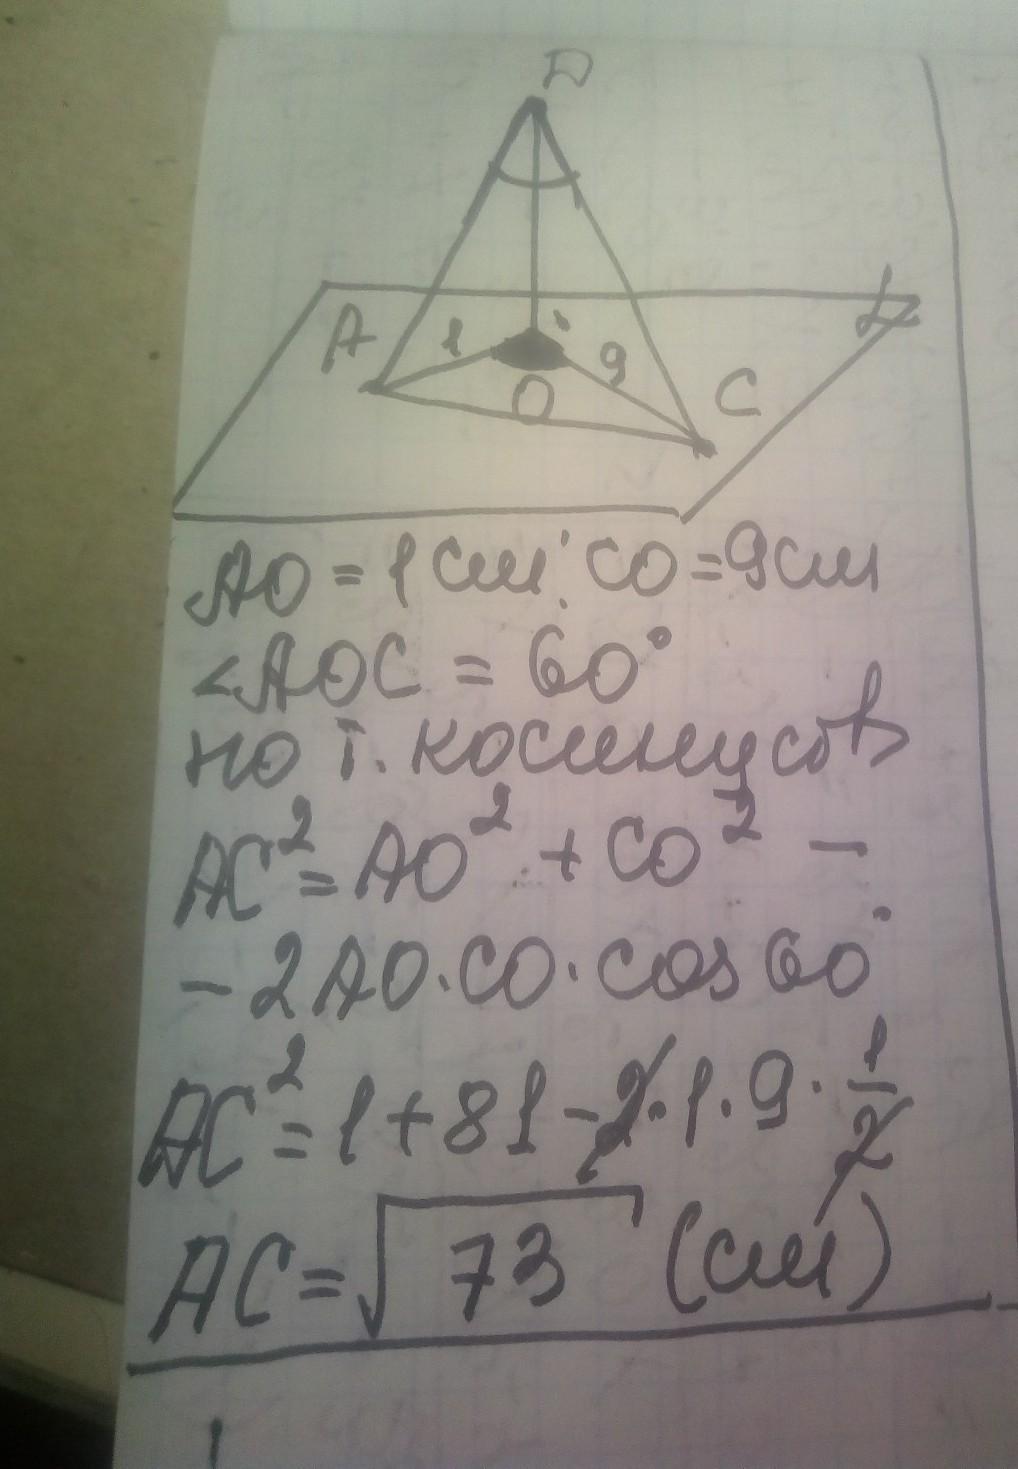 D
A 1 9 C
O
AO = 1 см; CO = 9 см
∠AOC = 60°
по т. косинусов
AC² = AO² + CO² −
− 2AO · CO · cos 60°
AC² = 1 + 81 − 2 · 1 · 9 · 1/2
AC = √73 (см)